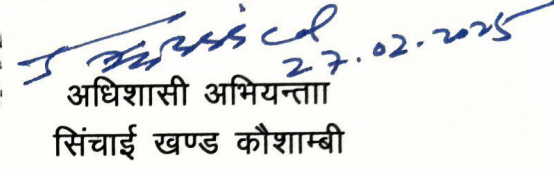 27.02.2025
अधिशासी अभियन्ताा
सिंचाई खण्ड कौशाम्बी